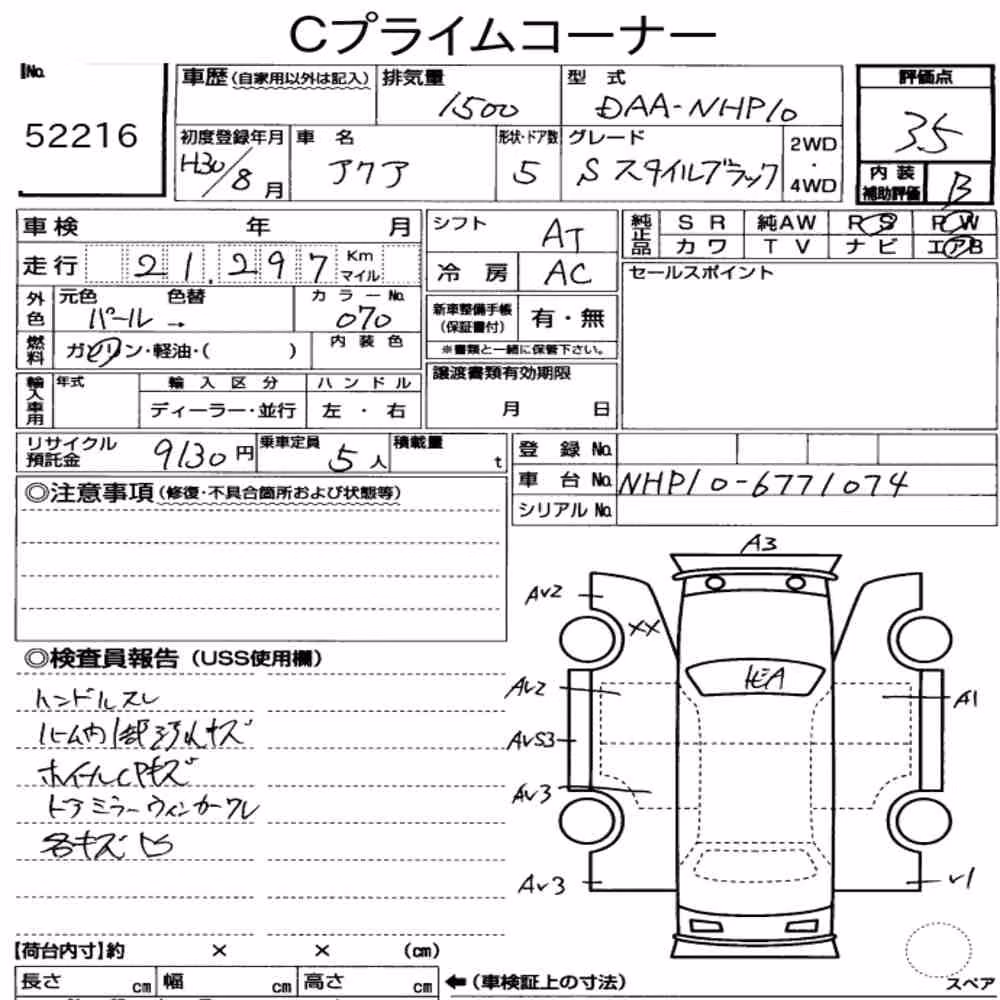 Cプライムコーナー
No.
52216
車歴 (自家用以外は記入)
排気量
1500
型 式
DAA-NHP10
評価点
3.5
初度登録年月
H30/8月
車 名
アクア
形状・ドア数
5
グレード
Sスタイルブラック
2WD
・
4WD
内装
補助評価
B
車検 年 月
走行 21,297 Km
マイル
シフト
AT
冷 房
AC
純正品
SR 純AW PS PW
カワ TV ナビ エアB
外色
元色 色替
パール→
カラーNo.
070
燃料
ガソリン・軽油・( )
内装色
新車整備手帳
(保証書付)
有・無
※書類と一緒に保管下さい。
セールスポイント
輸入車用
年式
輸入区分
ディーラー・並行
ハンドル
左・右
譲渡書類有効期限
月 日
リサイクル
預託金
9130円
乗車定員
5人
積載量
t
登 録 No.
車 台 No. NHP10-6771074
シリアル No.
◎注意事項 (修復・不具合箇所および状態等)
◎検査員報告 (USS使用欄)
ハンドルスレ
ルーム内1部汚れキズ
ホイールCPキズ
ドアミラーウィンカーワレ
各キズ凹
A3
AV2
XX
AV2
AVS3
AV3
AV3
A1
V1
スペア
【荷台内寸】約 × × (cm)
長さ cm 幅 cm 高さ cm
←(車検証上の寸法)